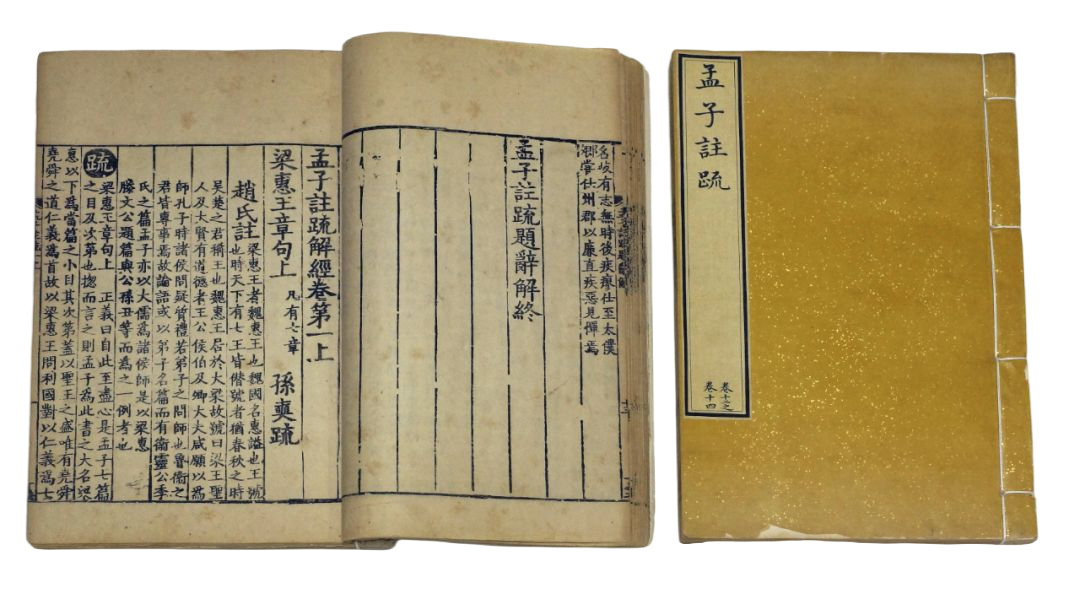 孟子註䟽
卷十三之
卷十四
名歧有志無時後疾瘳仕至太僕
郡嘗仕州郡以廉直疾惡見憚焉
孟子註䟽題辭解終
孟子註䟽解經卷第一上
梁惠王章句上 凡有七章 孫奭䟽
趙氏註 梁惠王者魏惠王也魏國名惠謚也王號
也時天下有七王皆僭號者猶春秋之時
吳楚之君稱王也魏惠王居於大梁故號曰梁王聖
人及大賢有道德者王公侯伯及卿大夫咸願以爲
師孔子時諸侯問疑質禮若弟子之問師也魯衞之
君皆專事焉故論語或以弟子名篇而有衞靈公季
氏之篇孟子亦以大儒爲諸侯師是以梁惠
滕文公題篇與公孫丑等而爲之一例者也
䟽 梁惠王章句上 正義曰自此至盡心是孟子七篇
之目及次第也揔而言之則孟子爲此書之大名梁
惠以下爲當篇之小目其次第蓋以聖王之盛唯有堯舜
堯舜之道仁義爲首故以梁惠王問利國對以仁義爲